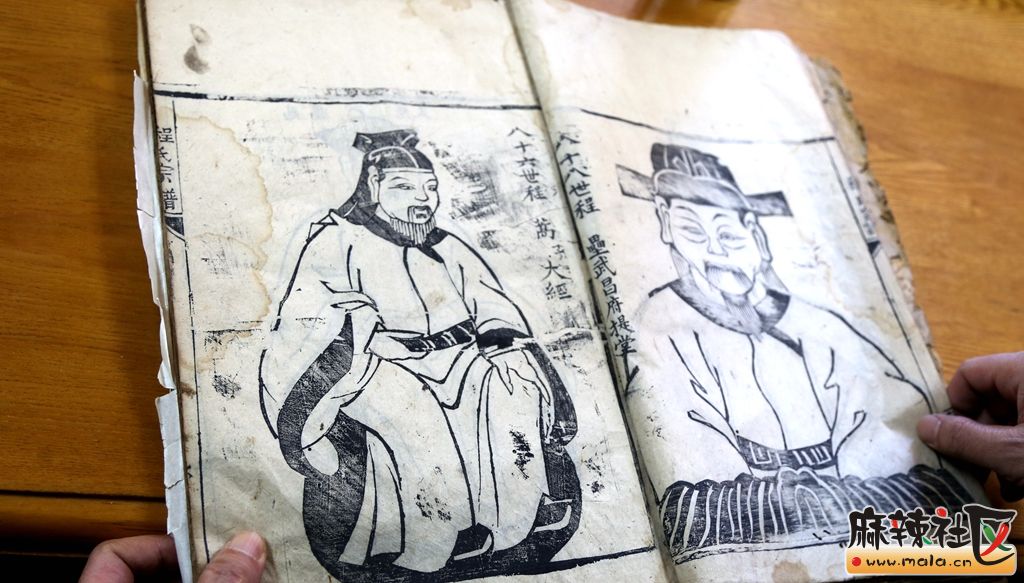 程氏宗譜
八十六世程 萬子大經
八十八世程 壘武昌府提掌
麻辣社区
www.mala.cn